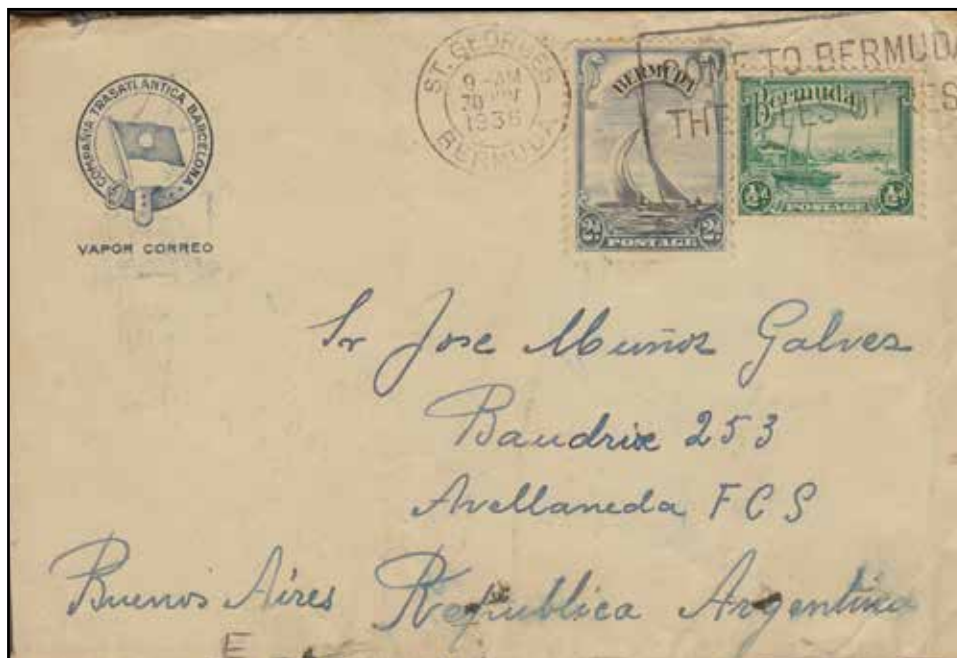 COMPAÑIA TRASATLANTICA BARCELONA
VAPOR CORREO
ST. GEORGES
9 - AM
1936
BERMUDA
COME TO BERMUDA
THE ISLES OF
BERMUDA
2d POSTAGE 2d
Bermuda
½d POSTAGE ½d
Sr Jose Muñoz Galvez
Baudrix 253
Avellaneda F C S
Buenos Aires Republica Argentina
E